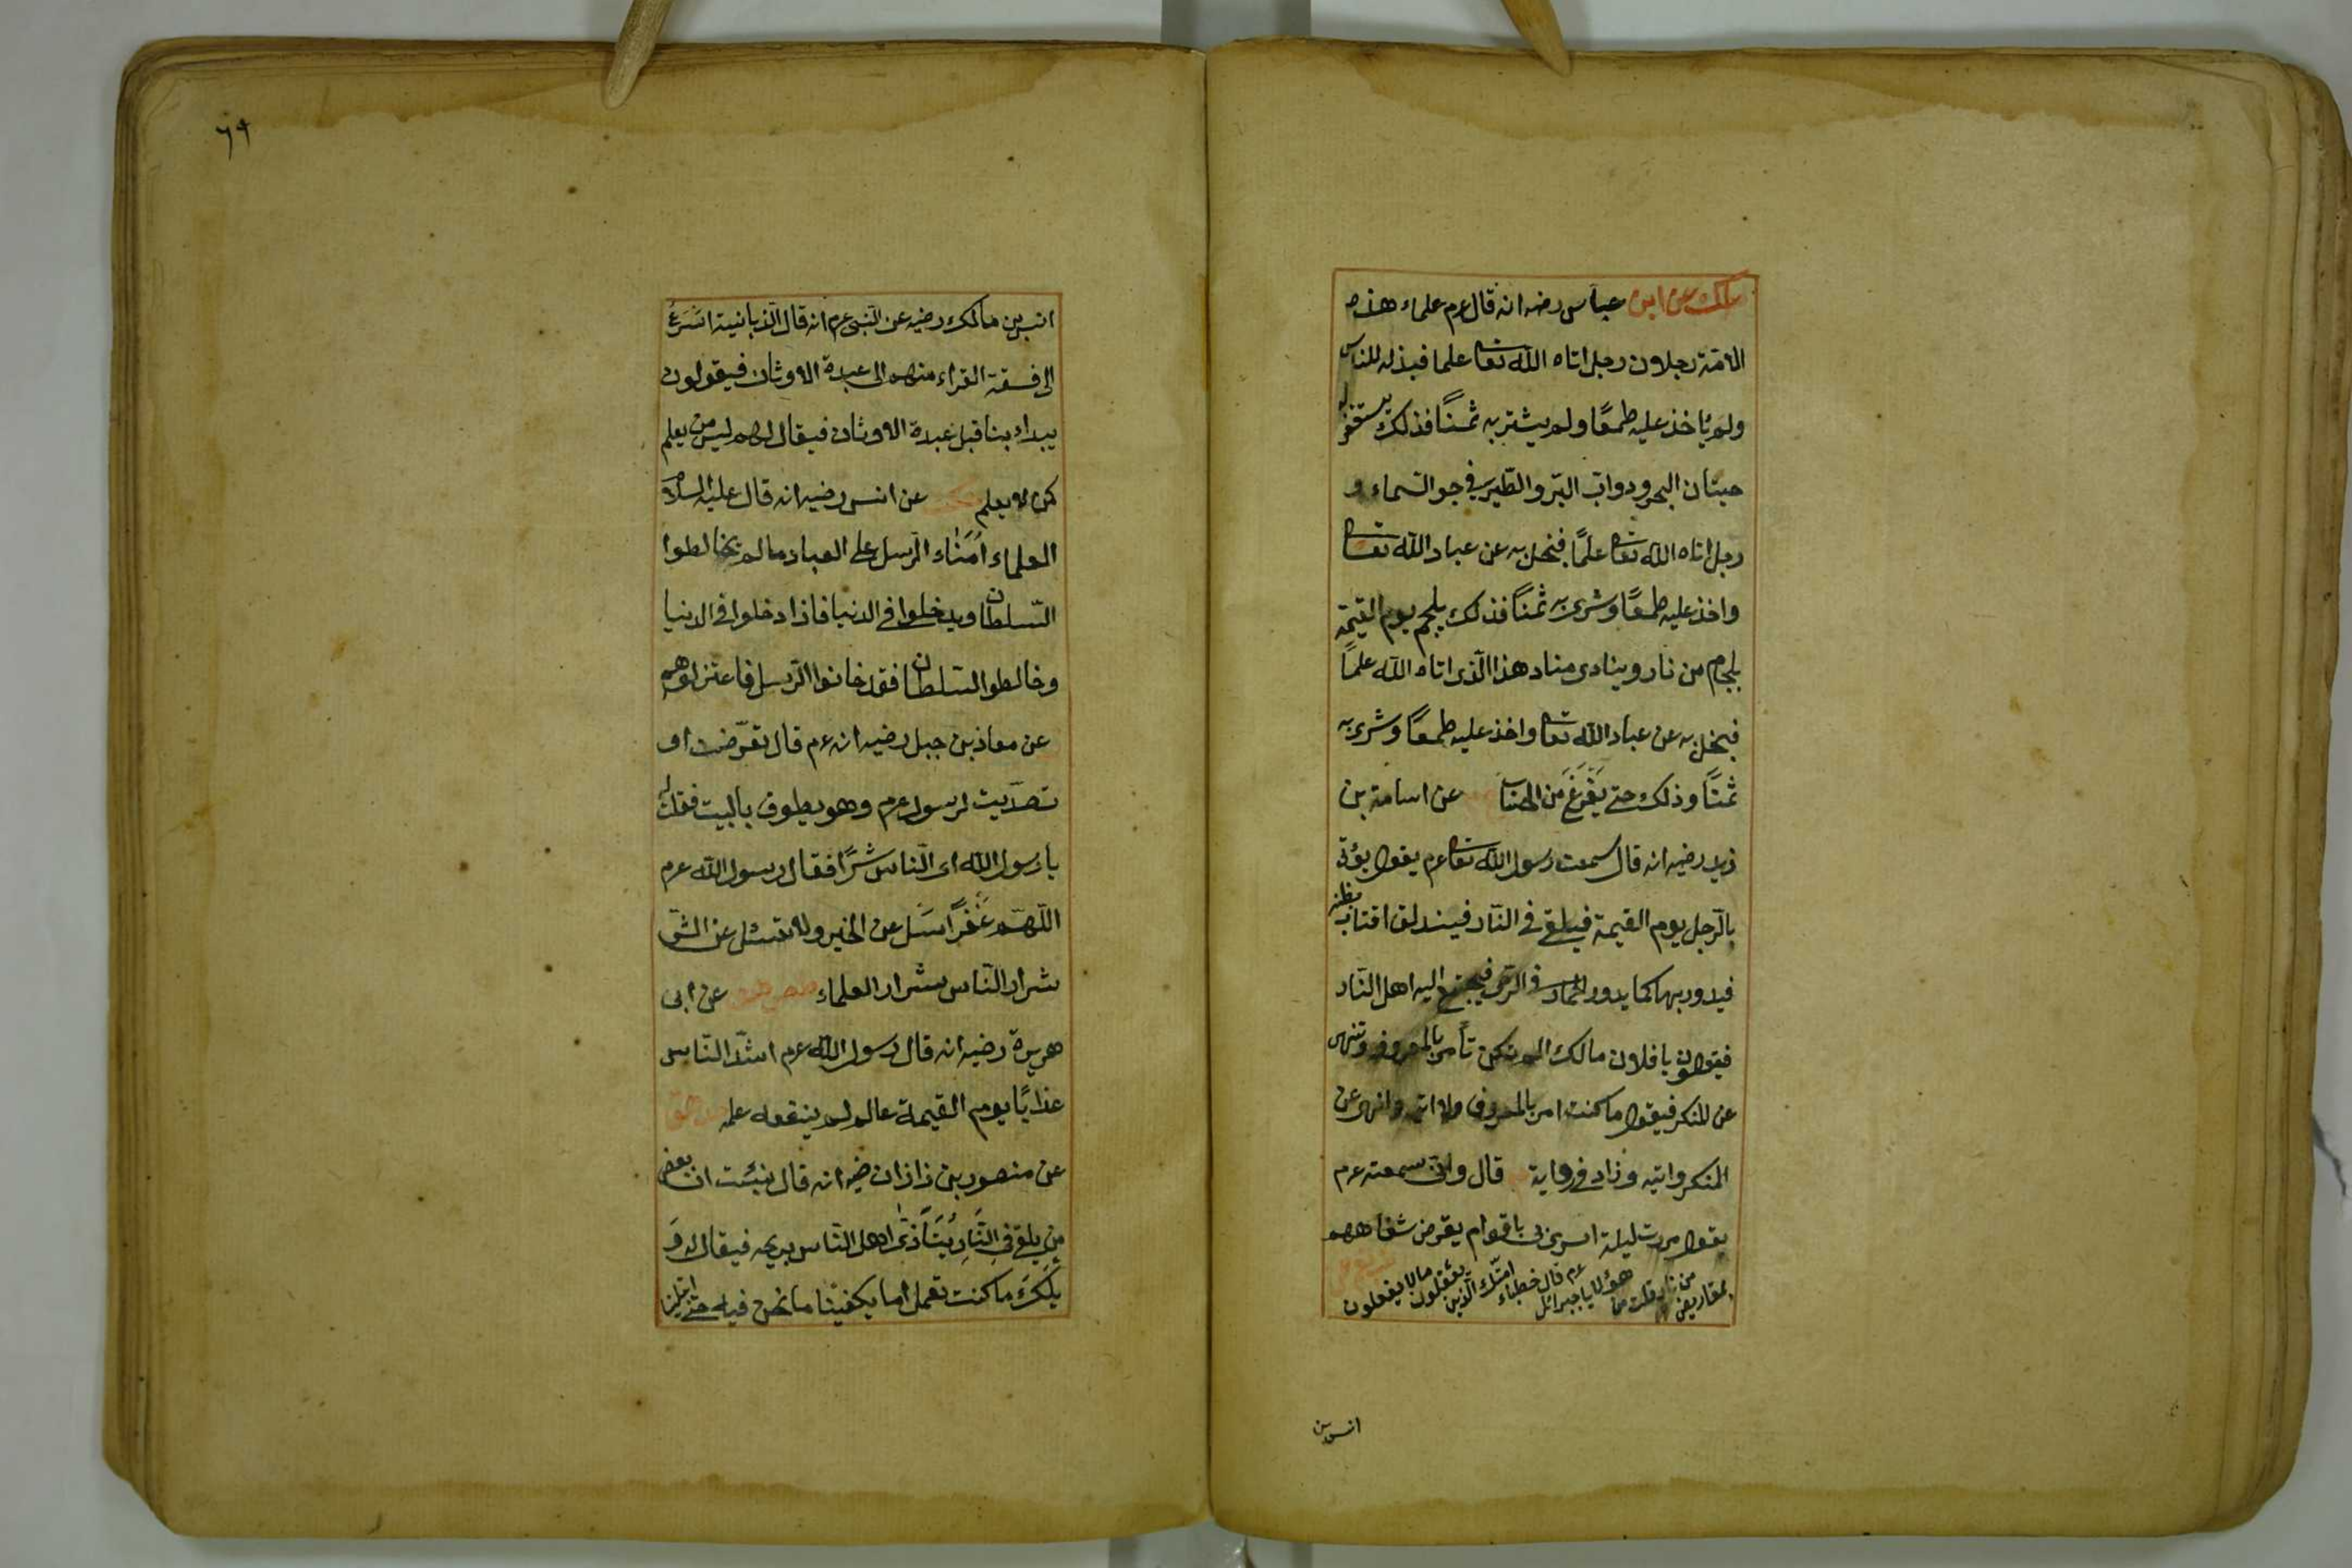 عن ابن عباس رضه انه قال عرم علماء هذه
الامّة رجلان رجل اتاه الله تعا علما فبذله للناس
ولم يأخذ عليه طمعًا ولم يشتر به ثمنًا فذلك يستغفر له
حيتان البحر ودوابّ البرّ والطّير في جو السّماء و
رجل اتاه الله تعا علمًا فبخل به عن عباد الله تعا
واخذ عليه طمعًا وشرى به ثمنًا فذلك يلجم يوم القيمة
بلجام من نار وينادى مناد هذا الّذى اتاه الله علمًا
فبخل به عن عباد الله تعا واخذ عليه طمعًا وشرى به
ثمنًا وذلك حتى يَفْرَغَ من الحساب عن اسامة بن
زيد رضيه انه قال سمعت رسول الله تعا عرم يقول يؤتى
بالرّجل يوم القيمة فيلقى في النّار فيندلق اقتاب بطنه
فيدور بها كما يدور الحمار في الرّحى فيجتمع اليه اهل النّار
فيقولون يا فلان مالك الم تكن تأمر بالمعروف وتنهى
عن المنكر فيقول ما كنت امر بالمعروف ولا اتيه وانهى عن
المنكر واتيه وزاد في رواية قال وانّى سمعته عرم
يقول مررت ليلة اسرى بى باقوام يقرض شفاههم
بمقاريض من نار قلت من هؤلا يا جبرائل عرم قال خطباء امّتك الّذين يقولون مالا يفعلون
انس بن
٦٩
انس بن مالك رضيه عن النّبى عرم انه قال الزبانية اسرع
الى فسقة القراء منهم الى عبدة الاوثان فيقولون
يبداء بنا قبل عبدة الاوثان فيقال لهم ليس من يعلم
كمن لا يعلم عن انس رضيه انه قال عليه السلام
العلماء اُمَنَاء الرّسل على العباد ما لم يخالطوا
السّلطان ويدخلوا في الدنيا فاذا دخلوا في الدنيا
وخالطوا السّلطان فقد خانوا الرّسل فاعتزلوهم
عن معاذ بن جبل رضيه انه عرم قال تعرّضت او
تصدّيت لرسول عرم وهو يطوف بالبيت فقلت له
يا رسول الله اى النّاس شرًا فقال رسول الله عرم
اللّهمّ غَفْرًا سَل عن الخير ولا تسئل عن الشّر
شرار النّاس شرار العلماء عن ابى
هريرة رضيه انه قال رسول الله عرم اشدّ النّاس
عذابًا يوم القيمة عالم لم ينفعه علمه
عن منصور بن زاذان رضيه انه قال نبئت ان بعض
من يلقى في النّار يتأذّى اهل النّاس بريحه فيقال له وَ
يلك ما كنت تعمل اما يكفينا ما نحن فيه حتى ابتلينا